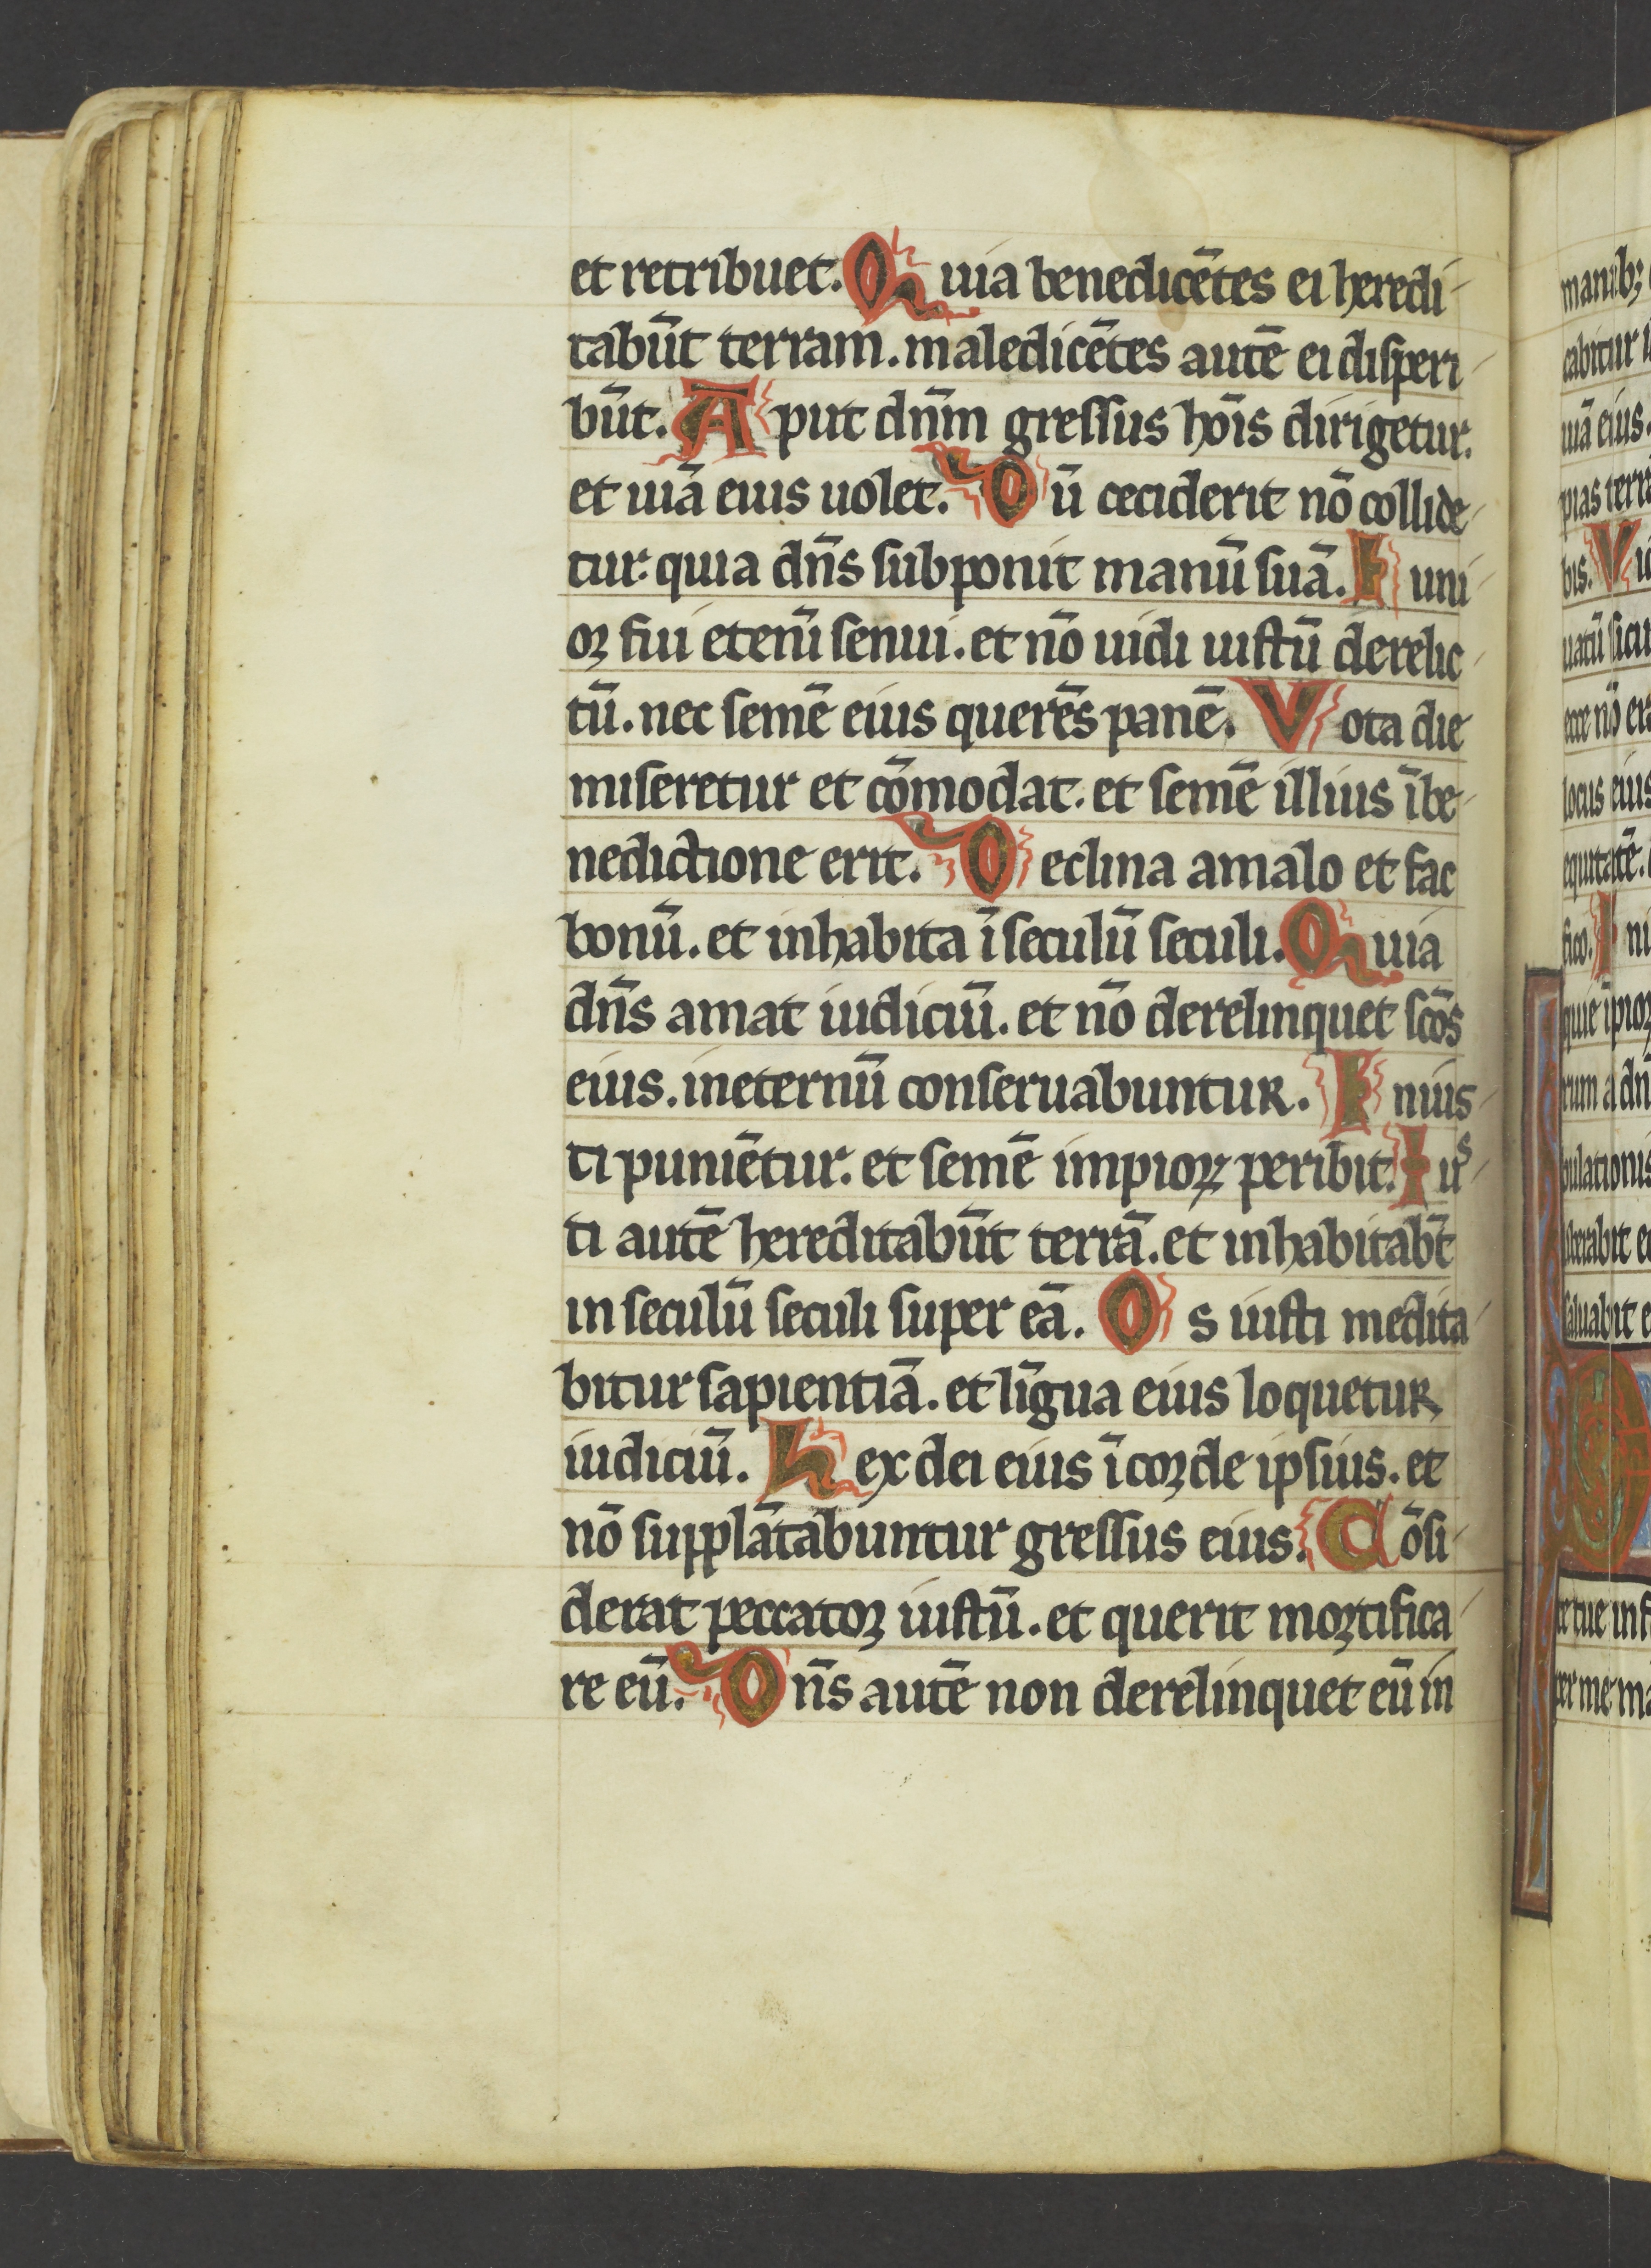 et retribuet. Quia benedicētes ei heredi
tabūt terram. maledicētes autē ei disperi
būt. Aput dn̄m gressus hoīs dirigetur.
et uiā eius uolet. Dū ceciderit nō collide
tur. quia dn̄s subponit manū suā. Iuni
oꝛ fui eteni̅ senui. et nō uidi iustū derelic
tū. nec semē eius querēs panē. Vota die
miseretur et cōmodat. et semē illius i̅ be
nedictione erit. Declina amalo et fac
bonū. et inhabita i̅ seculū seculi. Quia
dn̄s amat iudiciū. et nō derelinquet sc̄os
eius. ineternū conseruabuntur. Inius
ti puniētur. et semē impioꝝ peribit. Ius
ti autē hereditabūt terrā. et inhabitab̄t
in seculū seculi super eā. Os iusti medita
bitur sapientiā. et li̅gua eius loquetur
iudiciū. Lex dei eius i̅ corde ipsius. et
nō supplātabuntur gressus eius. Cōsi
derat peccator iustū. et querit mortifica
re eū. Dn̄s autē non derelinquet eū in
manib;
cabitur
uiā eius.
pias terrā
bis. Vi
uatū sicu
ecce nō er
locus eius
equitatē.
fico. I ni
quie i̅pioꝝ
rum a dn̄
bulationis
liberabit e
saluabit e
D
te tue inf
per me ma